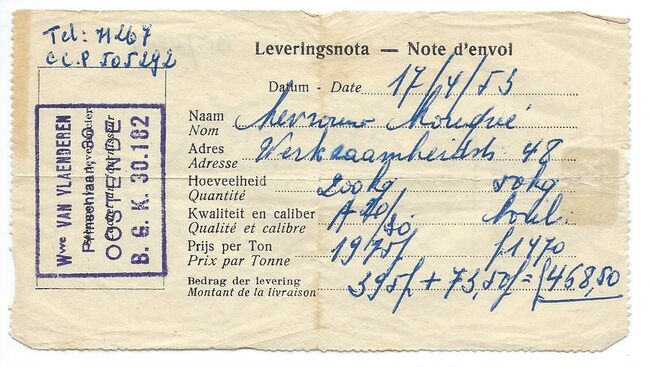 Tel: 71267
C.C.P 505292
Wwe VAN VLAENDEREN
OOSTENDE
B. G. K. 30.182
Leveringsnota — Note d'envoi
Datum - Date 17/4/53
Naam
Nom Mevrouw Mouqué
Adres
Adresse Werkzaamheidstr 48
Hoeveelheid
Quantité 200kg 50kg
Kwaliteit en caliber
Qualité et calibre A 20/30
Prijs per Ton
Prix par Tonne 1975f f1470
Bedrag der levering
Montant de la livraison 395f + 73,50f = f468,50